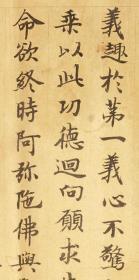 義趣於第一義心不驚
乗以此功德迴向願求
命欲終時阿弥陁佛與